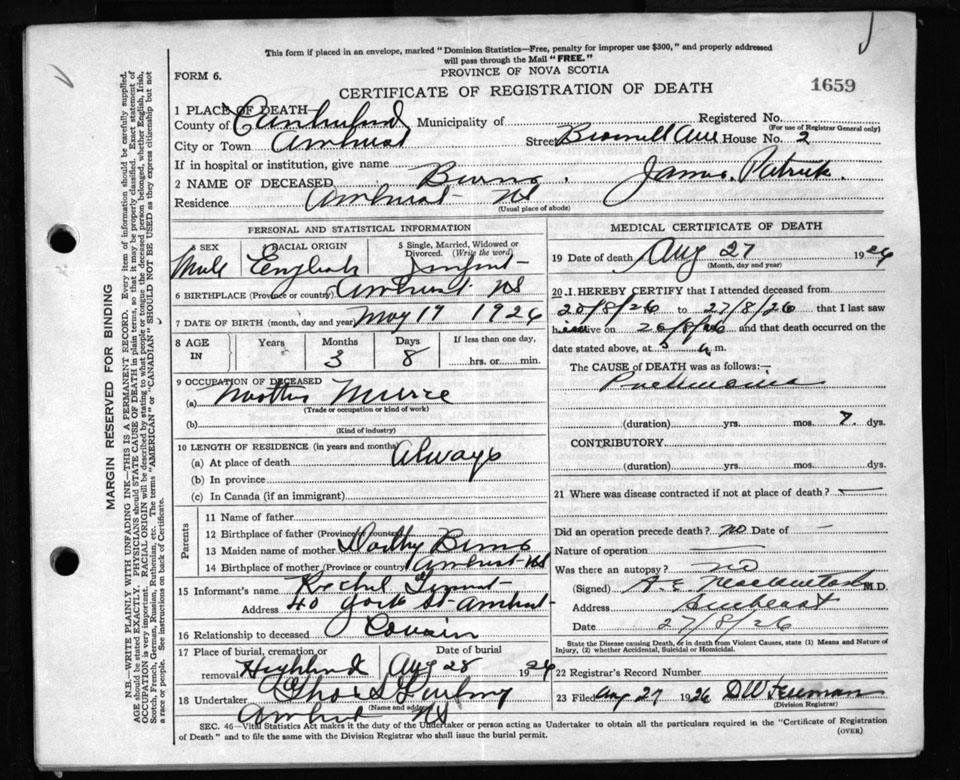 This form if placed in an envelope, marked "Dominion Statistics—Free, penalty for improper use $300," and properly addressed
will pass through the Mail "FREE."
FORM 6.
PROVINCE OF NOVA SCOTIA
1659
CERTIFICATE OF REGISTRATION OF DEATH
1 PLACE OF DEATH
County of Cumberland Municipality of
Registered No.
(For use of Registrar General only)
City or Town Amherst Street House No. 2
If in hospital or institution, give name
2 NAME OF DECEASED Burns. James. Patrick.
Residence Amherst NS
(Usual place of abode)
PERSONAL AND STATISTICAL INFORMATION
SEX
Male
RACIAL ORIGIN
English
5 Single, Married, Widowed or
Divorced. (Write the word)
Infant
6 BIRTHPLACE (Province or country) Amherst NS
7 DATE OF BIRTH (month, day and year) May 19 1926
8 AGE
IN
Years
Months
3
Days
8
If less than one day,
hrs. or min.
9 OCCUPATION OF DECEASED
(a)
(Trade or occupation or kind of work)
(b)
(Kind of industry)
10 LENGTH OF RESIDENCE (in years and months)
(a) At place of death Always
(b) In province
(c) In Canada (if an immigrant)
Parents
11 Name of father
12 Birthplace of father (Province or country)
13 Maiden name of mother Dorothy Burns
14 Birthplace of mother (Province or country) Amherst NS
15 Informant's name
Address 40 York St Amherst
16 Relationship to deceased Cousin
17 Place of burial, cremation or
removal Highland
Date of burial
Aug 28 1926
18 Undertaker
(Name and address)
Amherst NS
MEDICAL CERTIFICATE OF DEATH
19 Date of death Aug 27 1926
(Month, day and year)
20 I HEREBY CERTIFY that I attended deceased from
20/8/26 to 27/8/26 that I last saw
h alive on 26/8/26 and that death occurred on the
date stated above, at m.
The CAUSE of DEATH was as follows:—
Pneumonia
(duration) yrs. mos. 7. dys.
CONTRIBUTORY
(duration) yrs. mos. dys.
21 Where was disease contracted if not at place of death? —
Did an operation precede death? no Date of —
Nature of operation —
Was there an autopsy? no
(Signed) M.D.
Address Amherst
Date 27/8/26
State the Disease causing Death, or in death from Violent Causes, state (1) Means and Nature of
Injury, (2) whether Accidental, Suicidal or Homicidal.
22 Registrar's Record Number
23 Filed Aug 27 1926
(Division Registrar)
SEC. 46—Vital Statistics Act makes it the duty of the Undertaker or person acting as Undertaker to obtain all the particulars required in the "Certificate of Registration
of Death" and to file the same with the Division Registrar who shall issue the burial permit.
(OVER)
MARGIN RESERVED FOR BINDING
N.B.—WRITE PLAINLY WITH UNFADING INK—THIS IS A PERMANENT RECORD. Every item of information should be carefully supplied.
AGE should be stated EXACTLY. PHYSICIANS should STATE CAUSE OF DEATH in plain terms, so that it may be properly classified. Exact statement of
OCCUPATION is very important. RACIAL ORIGIN will be described by stating to what people or tongue the deceased person belonged, whether English, Irish,
Scotch, French, German, Russian, Ruthenian, etc. The terms "AMERICAN" or "CANADIAN" SHOULD NOT BE USED as they express citizenship but not
a race or people. See instructions on back of Certificate.